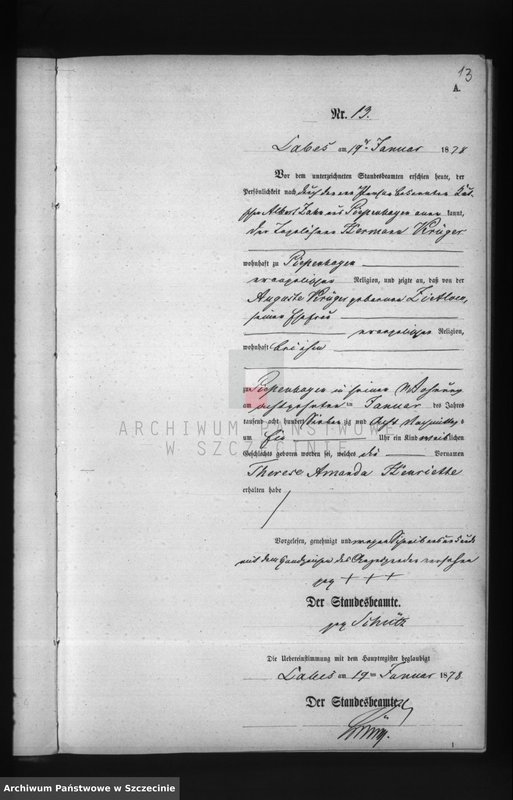 13
A.
Nr. 13.
Labes am 19ten Januar 1878
Vor dem unterzeichneten Standesbeamten erschien heute, der
Persönlichkeit nach durch den von Person bekannten
Albert Zahn aus Piepenhagen aner kannt,
der Tagelöhner Hermann Krüger
wohnhaft zu Piepenhagen
evangelischer Religion, und zeigte an, daß von der
Auguste Krüger geborenen Zietlow,
seiner Ehefrau
evangelischer Religion,
wohnhaft bei ihm
zu Piepenhagen in seiner Wohnung
am achtzehnten ten Januar des Jahres
tausend acht hundert siebenzig und acht Nachmittags
um Uhr ein Kind weiblichen
Geschlechts geboren worden sei, welches die Vornamen
Therese Amanda Henriette
erhalten habe
Vorgelesen, genehmigt und wegen Schreibensunkunde
mit dem Handzeichen des Anzeigenden versehen
gez + + +
Der Standesbeamte.
gez Schütz
Die Uebereinstimmung mit dem Hauptregister beglaubigt
Labes am 19ten Januar 1878
Der Standesbeamte
ARCHIWUM PAŃSTWOWE
W SZCZECINIE
1
Archiwum Państwowe w Szczecinie